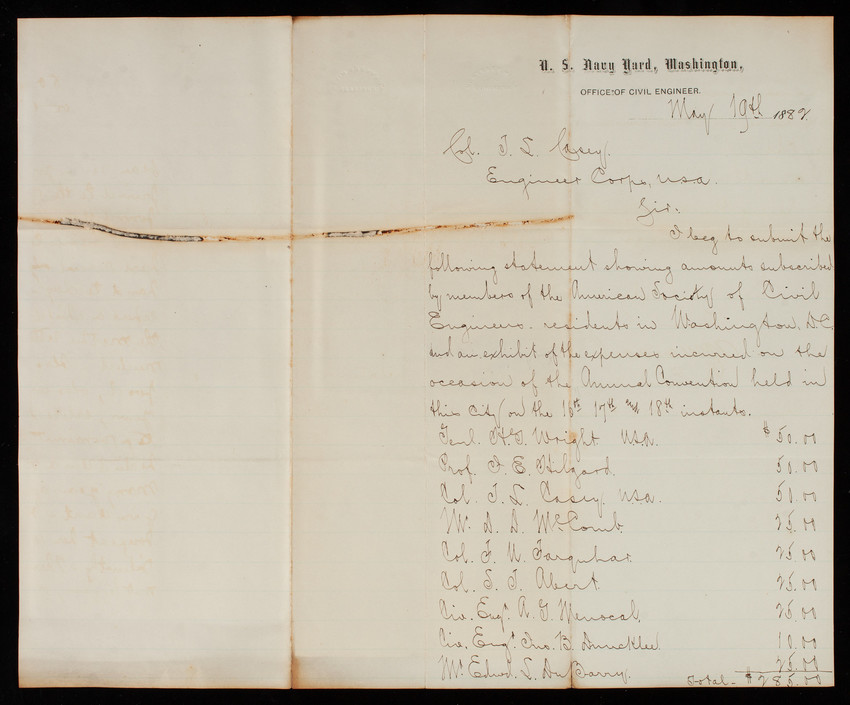 U. S. Navy Yard, Washington,
OFFICE OF CIVIL ENGINEER.
May 19th 1882
Col. T. L. Casey.
Engineer Corps, USA.
Sir:
I beg to submit the
following statement showing amounts subscribed
by members of the American Society of Civil
Engineers. residents in Washington, D.C.
and an exhibit of the expenses incurred on the
occasion of the Annual Convention held in
this city on the 16th 17th and 18th instants.
Genl. H. G. Wright USA. $50.00
Prof. J. E. Hilgard. 50.00
Col. T. L. Casey. USA. 50.00
Mr. D. D. McComb. 25.00
Col. F. U. Farquhar. 25.00
Col. S. T. Abert. 25.00
Civ. Engr. A. G. Menocal. 25.00
Civ. Engr. Jno. B. Duncklee. 10.00
Mr. Edwd. L. DuBarry. 25.00
Total - $285.00